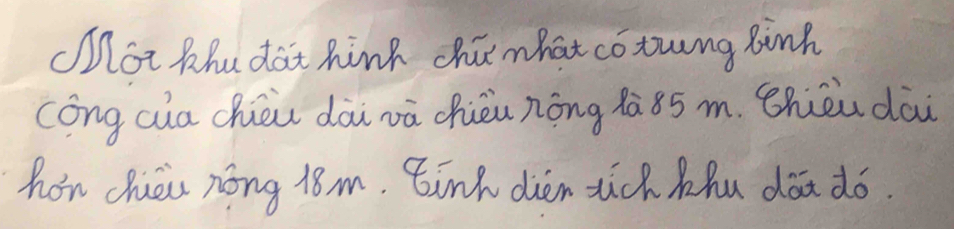 Một khu đất hình chữ nhật có trung bình
cộng của chiều dài và chiều rộng là 85 m. Chiều dài
hơn chiều rộng 18 m. Tính diện tích khu đất đó.